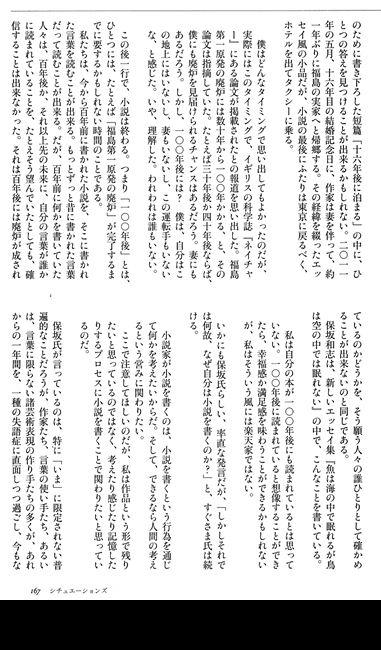 のために書き下ろした短篇『十六年後に泊まる』の中に、ひ
とつの答えを見つけることが出来るかもしれない。二〇一一
年の五月、十六年目の結婚記念日に、作家は妻を伴って、約
一年ぶりに福島の実家へと帰郷する。その経緯を綴ったエッ
セイ風の小品だが、小説の最後にふたりは東京に戻るべく、
ホテルを出てタクシーに乗る。
僕はどんなタイミングで思い出してもよかったのだが、
実際にはこのタイミングで、イギリスの科学誌『ネイチャ
ー』にある論文が掲載されたとの報道を思い出した。福島
第一原発の廃炉には数十年から一〇〇年かかる、と、その
論文は指摘していた。たとえば三十年後か四十年後ならば、
僕にも廃炉を見届けられるチャンスはあるだろう。妻にも
あるだろう。しかし、一〇〇年後には？　僕は、自分はこ
の地上にはいないし、妻もいないし、この運転手もいない
な、と感じた。いや、理解した。われわれは誰もいない。
この後一行で、小説は終わる。つまり「一〇〇年後」とは、
ひとつには、たとえば「福島第一原発の廃炉」が完了するま
でに要するかもしれない時間のことである。
私たちは、今から百年前に書かれた小説を、そこに書かれ
た言葉を読むことが出来る。もっとずっと昔に書かれた言葉
だって読むことが出来る。だが、百年前に何かを書いていた
人々は、百年後か、それ以上先の未来に、自分の言葉が誰か
に読まれていることを、たとえそう望んでいたとしても、確
信することは出来なかった。それは百年後には廃炉が成され
ているのかどうかを、そう願う人々の誰ひとりとして確かめ
ることが出来ないのと同じである。
保坂和志は、新しいエッセイ集『魚は海の中で眠れるが鳥
は空の中では眠れない』の中で、こんなことを書いている。
私は自分の本が一〇〇年後にも読まれているとは思って
いない。一〇〇年後に読まれていると想像することができ
たら、幸福感か満足感を味わうことができるかもしれない
が、私はそういう風には楽天家ではない。
いかにも保坂氏らしい、率直な発言だが、「しかしそれで
は何故、なぜ自分は小説を書くのか？」と、すぐさま氏は続
ける。
小説家が小説を書くのは、小説を書くという行為を通じ
て何かを考えたいからだ。そして、できるなら人間の考え
るという営みに関わりたい。
ここで注意してほしいのだが、私は作品という形で残り
たいと思っているのではなく、考えたり感じたり記憶した
りするプロセスに小説を書くことで関わりたいと思ってい
るのだ。
保坂氏が言っているのは、特に「いま」に限定されない普
遍的なことだろうが、作家たち、言葉の使い手たち、あるい
は、言葉に限らない諸芸術表現の作り手たちの多くが、あれ
からの一年間を、一種の失語症に直面しつつ過ごし、今もな
167 シチュエーションズ